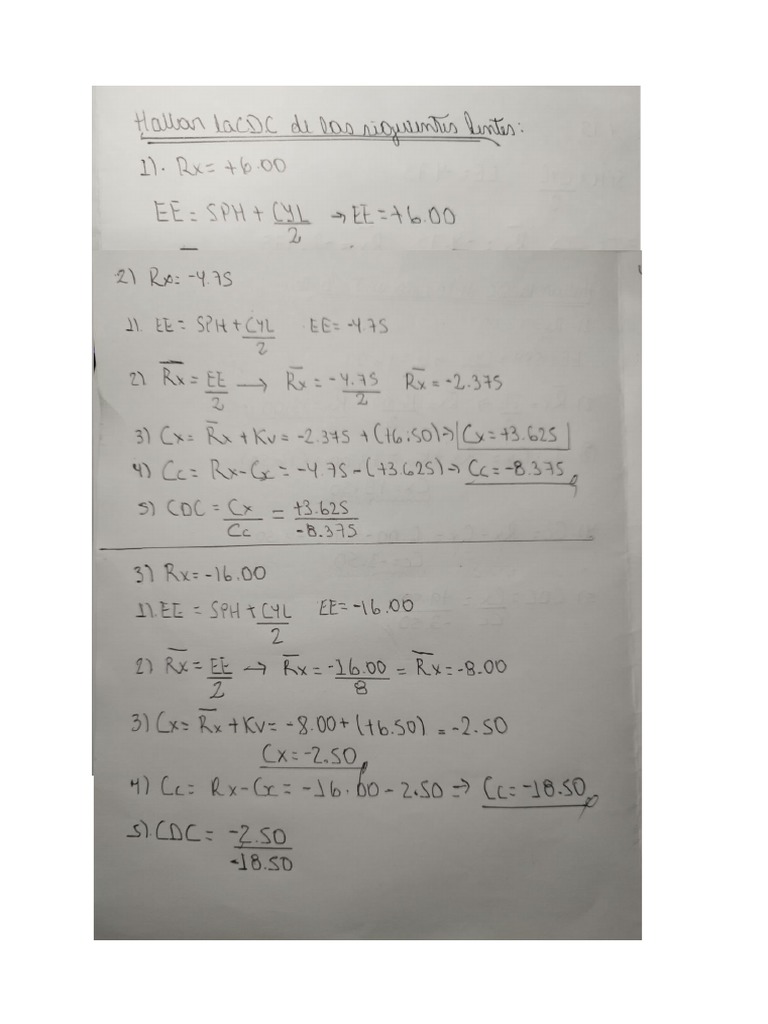 Hallar la CDC de las siguientes lentes:
1). Rx= +6.00
EE = SPH + CYL/2 → EE = +6.00
2) Rx= -4.75
1). EE = SPH + CYL/2 EE= -4.75
2) R̅x = EE/2 → R̅x = -4.75/2 R̅x = -2.375
3) Cx= R̅x + Kv = -2.375 + (+6.50) → Cx = +3.625
4) Cc= Rx-Cx = -4.75 - (+3.625) → Cc= -8.375
5) CDC = Cx/Cc = +3.625/-8.375
3) Rx= -16.00
1). EE = SPH + CYL/2 EE= -16.00
2) R̅x = EE/2 → R̅x = -16.00/8 = R̅x = -8.00
3) Cx= R̅x + Kv= -8.00 + (+6.50) = -2.50
Cx= -2.50
4) Cc= Rx-Cx = -16.00 - 2.50 ⇒ Cc= -18.50
5). CDC = -2.50/-18.50